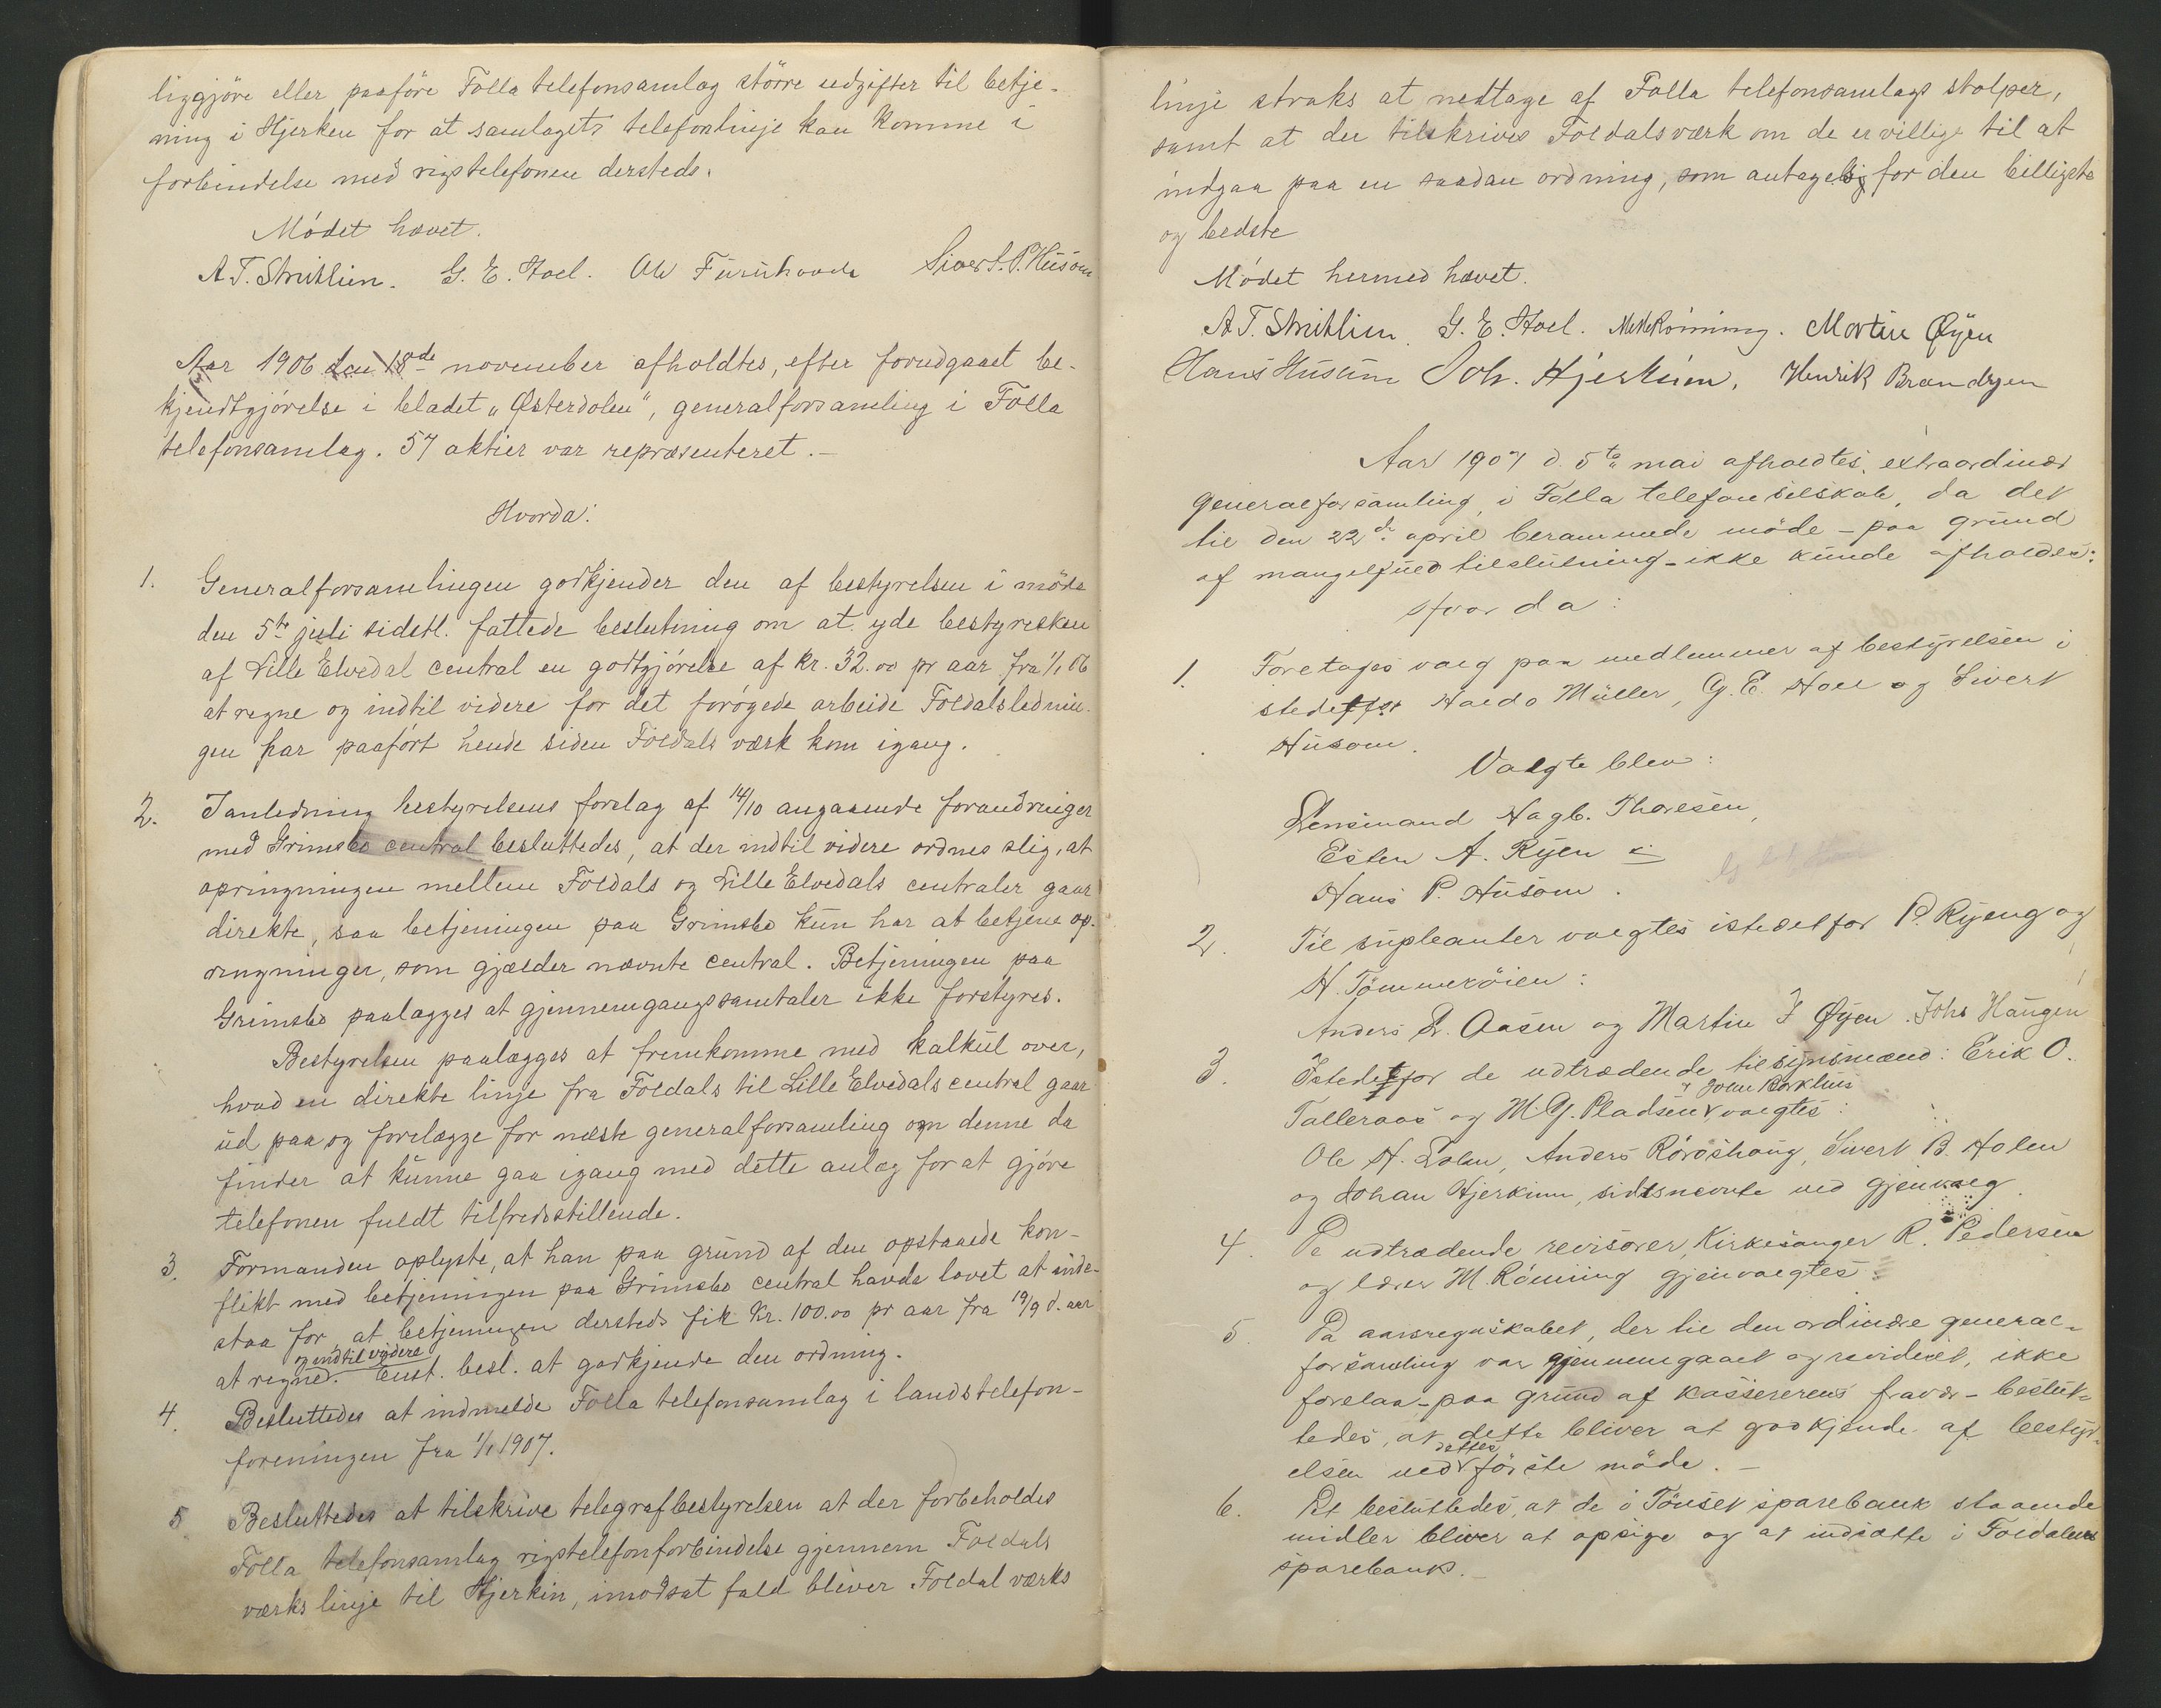 liggjöre eller paaföre Folla telefonsamlag större udgifter til betje-
ning i Hjerken for at samlagets telefonlinje kan komme i
forbindelse med rigstelefonen dersteds.
Mödet hævet.
A. T. Streitlien. G. E. Hoel. Ole Furuhovde Sivert P. Husom
Aar 1906 den 18de november afholdtes, efter forudgaaet be-
kjendtgjörelse i bladet "Østerdølen", generalforsamling i Folla
telefonsamlag. 57 aktier var repræsenteret.-
Hvorda:
1. Generalforsamlingen godkjender den af bestyrelsen i möde
den 5te juli sidstl. fattede beslutning om at yde bestyresken
af Lille Elvedal central en godtgjörelse af kr. 32.00 pr aar fra 1/1 06
at regne og indtil videre for det forögede arbeide Foldalslednin-
gen har paafört hende siden Foldals værk kom igang.
2. I anledning bestyrelsens forslag af 14/10 angaaende forandringer
med Grimsbo central besluttedes, at der indtil videre ordnes slig, at
opringningen mellem Foldals og Lille Elvedals centraler gaar
direkte, saa betjeningen paa Grimsbo kun har at betjene op-
ringninger, som gjælder nævnte central. Betjeningen paa
Grimsbo paalægges at gjennemgangssamtaler ikke forstyres.
Bestyrelsen paalægges at fremkomme med kalkul over,
hvad en direkte linje fra Foldals til Lille Elvedals central gaar
ud paa og forelægge for næste generalforsamling om denne da
finder at kunne gaa igang med dette anlæg for at gjöre
telefonen fuldt tilfredsstillende.
3. Formanden oplyste, at han paa grund af den opstaaede kon-
flikt med betjeningen paa Grimsbo central havde lovet at inde-
staa for, at betjeningen dersteds fik Kr. 100.00 pr aar fra 19/9 d. aar
og indtil videre
at regne. Enst. besl. at godkjende den ordning.
4. Besluttedes at indmelde Folla telefonsamlag i landstelefon-
foreningen fra 1/1 1907.
5 Besluttedes at tilskrive telegrafbestyrelsen at der forbeholdes
Folla telefonsamlag rigstelefonforbindelse gjennem Foldals
værks linje til Hjerkin, imodsat fald bliver Foldal værks
linje straks at nedtage af Folla telefonsamlags stolper,
samt at der tilskrives Foldalsværk om de er villige til at
indgaa paa en saadan ordning, som antagelig for den billigste
og bedste
Mödet hermed hævet.
A. T. Streitlien. G. E. Hoel. M. Rönning. Martin Øyen
Hans Husum Joh. Hjerkinn. Henrik Brandsgen
Aar 1907 d. 5te mai afholdtes extraordinær
generalforsamling i Folla telefonselskab, da det
til den 22de april berammede möde - paa grund
af mangelfuld tilslutning - ikke kunde afholdes:
Hvorda:
1. Foretages valg paa medlemmer af bestyrelsen i
stedetfor Haldo Müller, G. E. Hoel og Sivert
Husom.
Valgte blev:
Lensmand Hagb. Thoresen,
Esten A. Ryen
Hans P. Husom.
2. Til supleanter valgtes istedetfor P. Ryeng og
H. Tömmeröien:
Anders L. Aasen og Martin J Øyen. Johs Haugen
3. Istedetfor de udtrædende tilsynsmænd: Erik O.
John Borkhus
Talleraas og M. G. Pladsen valgtes:
Ole H. Dalen, Anders Röröshaug, Sivert B. Holen
og Johan Hjerkinn, sidstnevnte ved gjenvalg
4. De udtrædende revisorer, Kirkesanger R. Pedersen
og lærer M. Rönning gjenvalgtes.
5. Da aarsregnskabet, der til den ordinære general-
forsamling var gjennemgaaet og revideret, ikke
forelaa - paa grund af kassererens fravær - beslut-
tedes, at dette bliver at godkjende af besty-
dettes
elsen ved förste möde. -
6. Det besluttedes, at de i Tönset sparebank staaende
midler bliver at opsige og at indsætte i Foldalens
sparebank. -